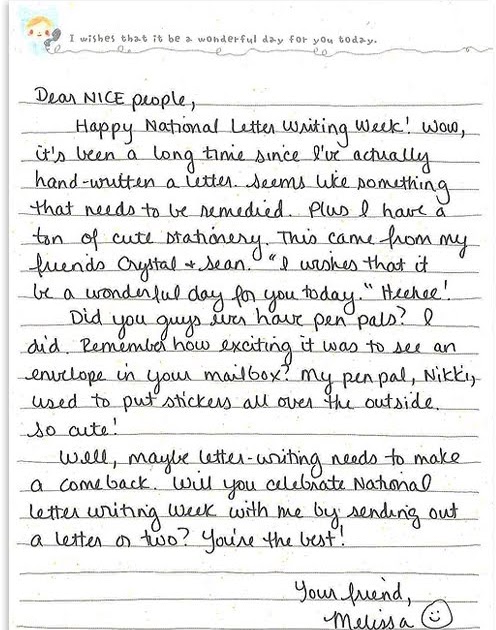 I wishes that it be a wonderful day for you today.
Dear NICE people,
Happy National Letter Writing Week! Wow,
it's been a long time since I've actually
hand-written a letter. Seems like something
that needs to be remedied. Plus I have a
ton of cute stationery. This came from my
friends Crystal + Sean. "I wishes that it
be a wonderful day for you today." Heehee!
Did you guys ever have pen pals? I
did. Remember how exciting it was to see an
envelope in your mailbox? My pen pal, Nikki,
used to put stickers all over the outside.
So cute!
Well, maybe letter-writing needs to make
a comeback. Will you celebrate National
Letter Writing Week with me by sending out
a letter or two? You're the best!
Your friend,
Melissa